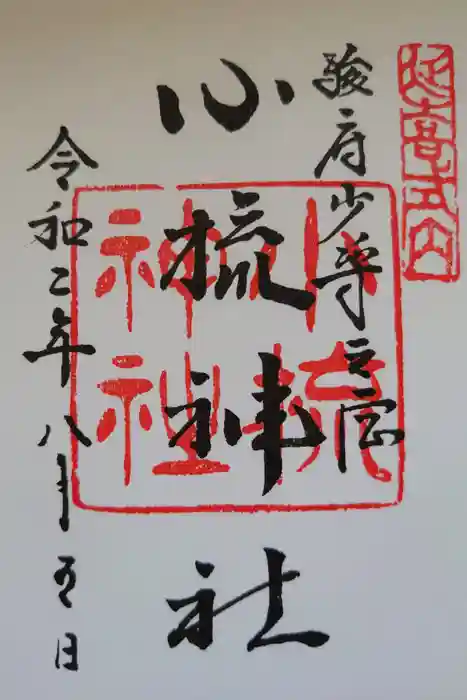 延喜式内
駿府少将之宮
小梳神社
小梳
神社
令和二年八月五日